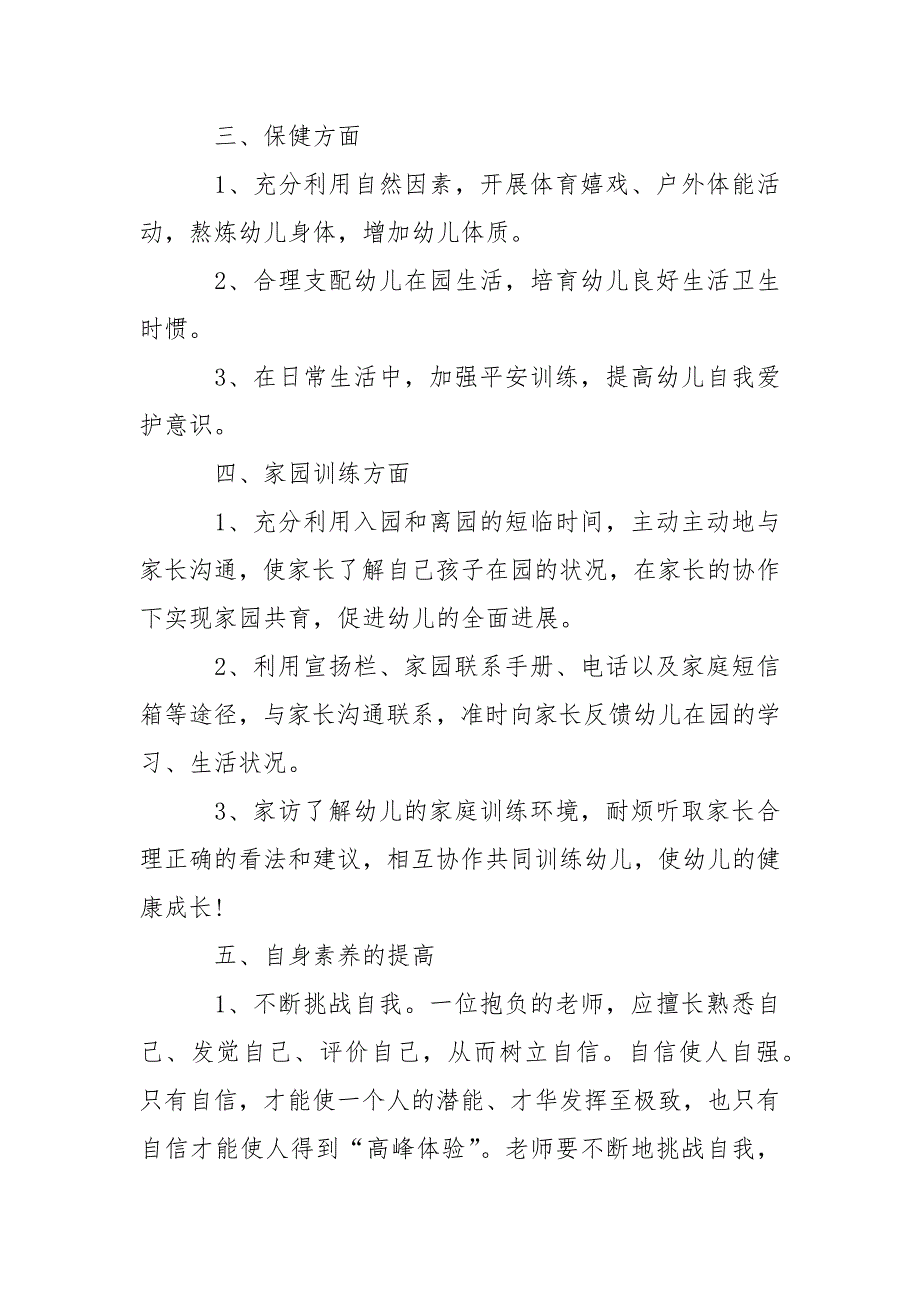 三、保健方面
1、充分利用自然因素，开展体育嬉戏、户外体能活
动，熬炼幼儿身体，增加幼儿体质。
2、合理支配幼儿在园生活，培育幼儿良好生活卫生
时惯。
3、在日常生活中，加强平安训练，提高幼儿自我爱
护意识。
四、家园训练方面
1、充分利用入园和离园的短临时间，主动主动地与
家长沟通，使家长了解自己孩子在园的状况，在家长的协作
下实现家园共育，促进幼儿的全面进展。
2、利用宣扬栏、家园联系手册、电话以及家庭短信
箱等途径，与家长沟通联系，准时向家长反馈幼儿在园的学
习、生活状况。
3、家访了解幼儿的家庭训练环境，耐烦听取家长合
理正确的看法和建议，相互协作共同训练幼儿，使幼儿的健
康成长!
五、自身素养的提高
1、不断挑战自我。一位抱负的老师，应擅长熟悉自
己、发觉自己、评价自己，从而树立自信。自信使人自强。
只有自信，才能使一个人的潜能、才华发挥至极致，也只有
自信才能使人得到“高峰体验”。老师要不断地挑战自我，